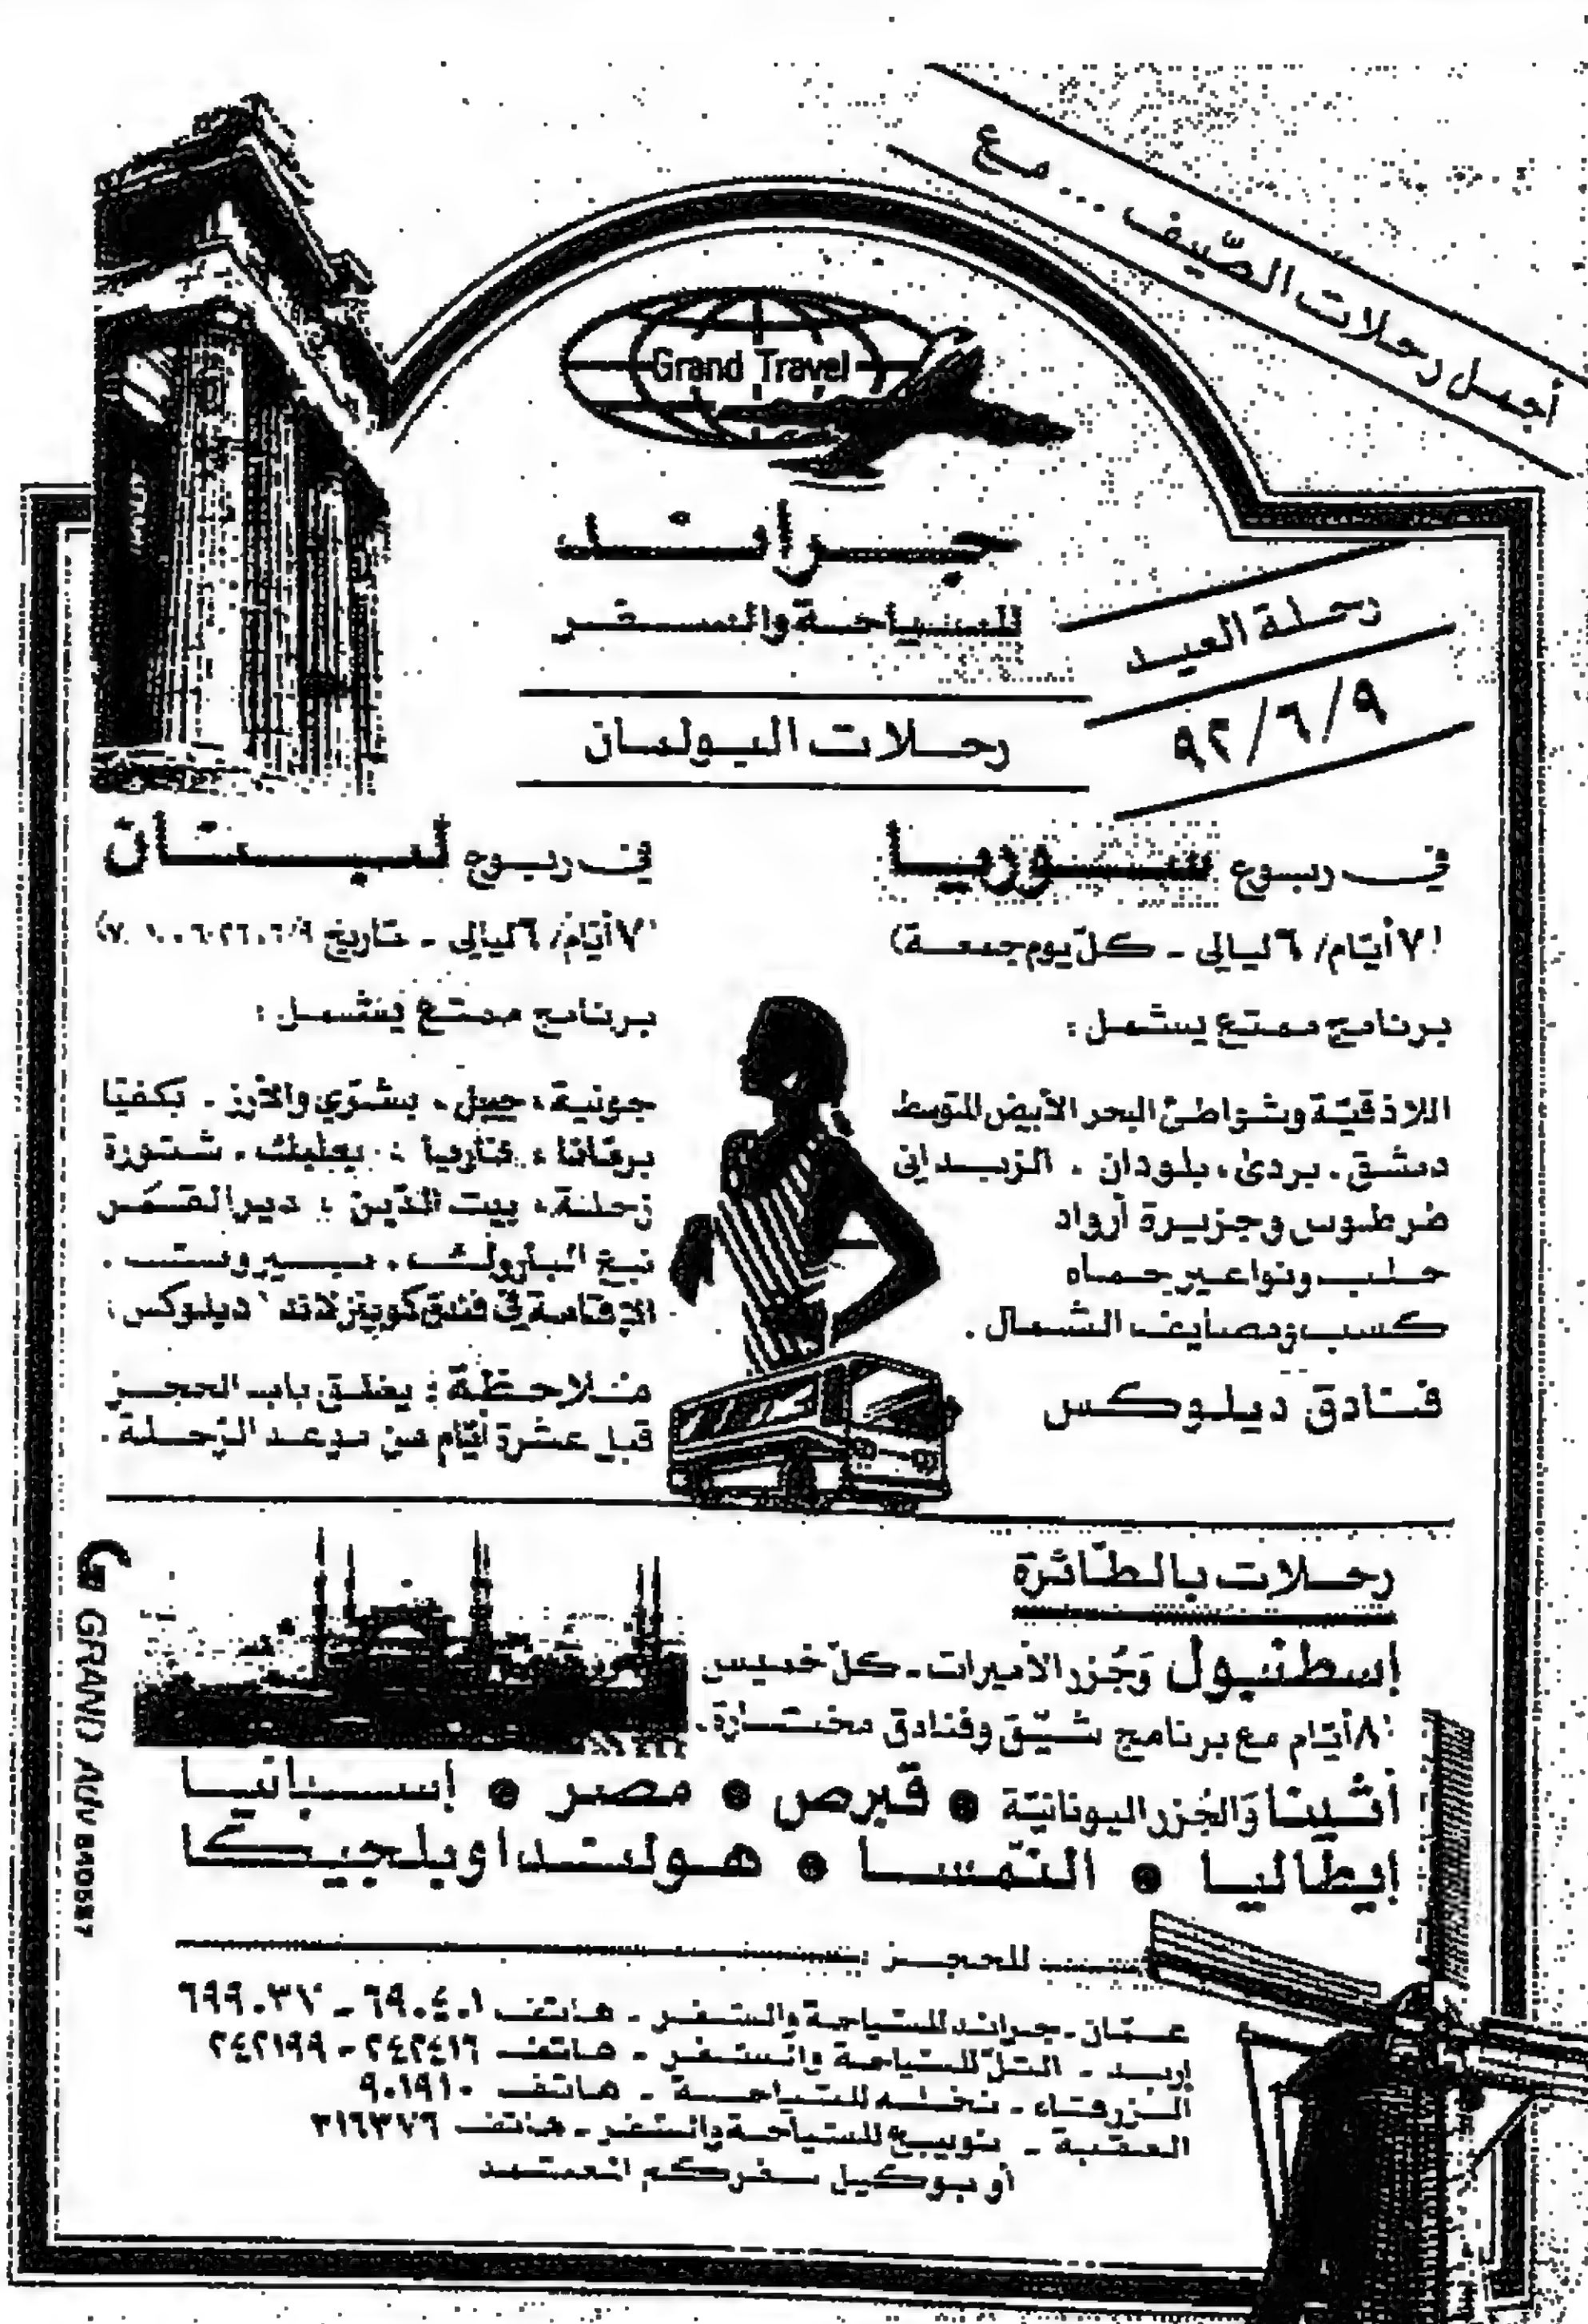 أجمل رحلات الصّيف ... مع
Grand Travel
جرانـد
للسياحة والسفر
رحلة العيد
٩٢/٦/٩
رحلات البولمان
في ربوع سوريا
(٧ أيّام/ ٦ ليالي - كلّ يوم جمعة)
برنامج ممتع يشمل :
اللاذقيّة وشواطئ البحر الأبيض المتوسط
دمشق . بردى ، بلودان . الزبداني
طرطوس وجزيرة أرواد
حلب ونواعير حماه
كسب ومصايف الشمال .
فنادق ديلوكس
في ربوع لبنان
٧ أيّام/ ٦ ليالي - تاريخ
برنامج ممتع يشمل :
جونية ، جبيل ، بشرّي والأرز . بكفيّا
برمّانا ، عاريا ، بعلبك ، شتورة
زحلة ، بيت الدّين ، دير القمر
نبع الباروك ، بيروت .
الإقامة في فندق كوينز لاند ديلوكس .
ملاحظة : يغلق باب الحجز
قبل عشرة أيّام من موعد الرّحلة .
رحلات بالطّائرة
إسطنبول وَجُزر الأميرات - كلّ خميس
٨ أيّام مع برنامج شيّق وفنادق مختارة .
أثينا وَالجُزر اليونانيّة • قبرص • مصر • إسبانيا
إيطاليا • النّمسا • هولندا وبلجيكا
GRAND ADV
للحجز :
عمّان - جراند للسّياحة والسّفر - هاتف ٦٩٠٤٠١ - ٦٩٩٠٣٧
إربد - التلّ للسّياحة والسّفر - هاتف ٢٤٢٤١٦ - ٢٤٢١٩٩
الزرقاء - نخله للسّياحة - هاتف ٩٠١٩١٠
العقبة - للسّياحة والسّفر - هاتف ٣١٦٣٧٦
أو بوكيل سفركم المعتمد